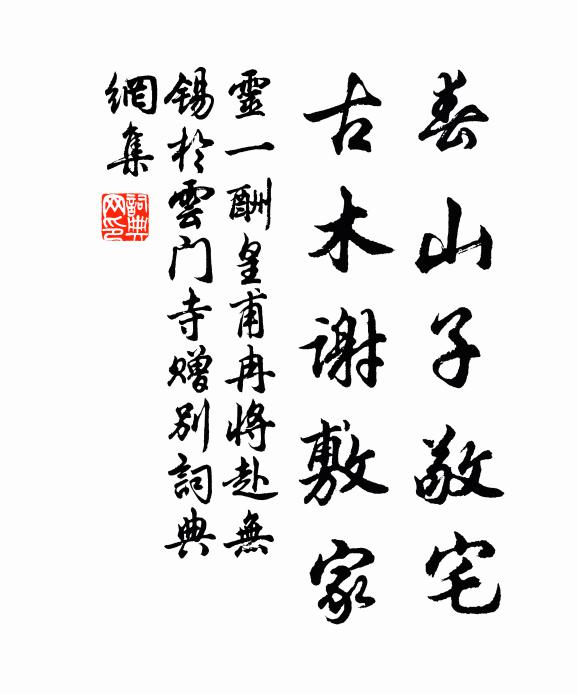 春山子敬宅
古木謝敷家
靈一酬皇甫冉將赴無
錫於雲门寺赠别詞典
網集
詞典
网印